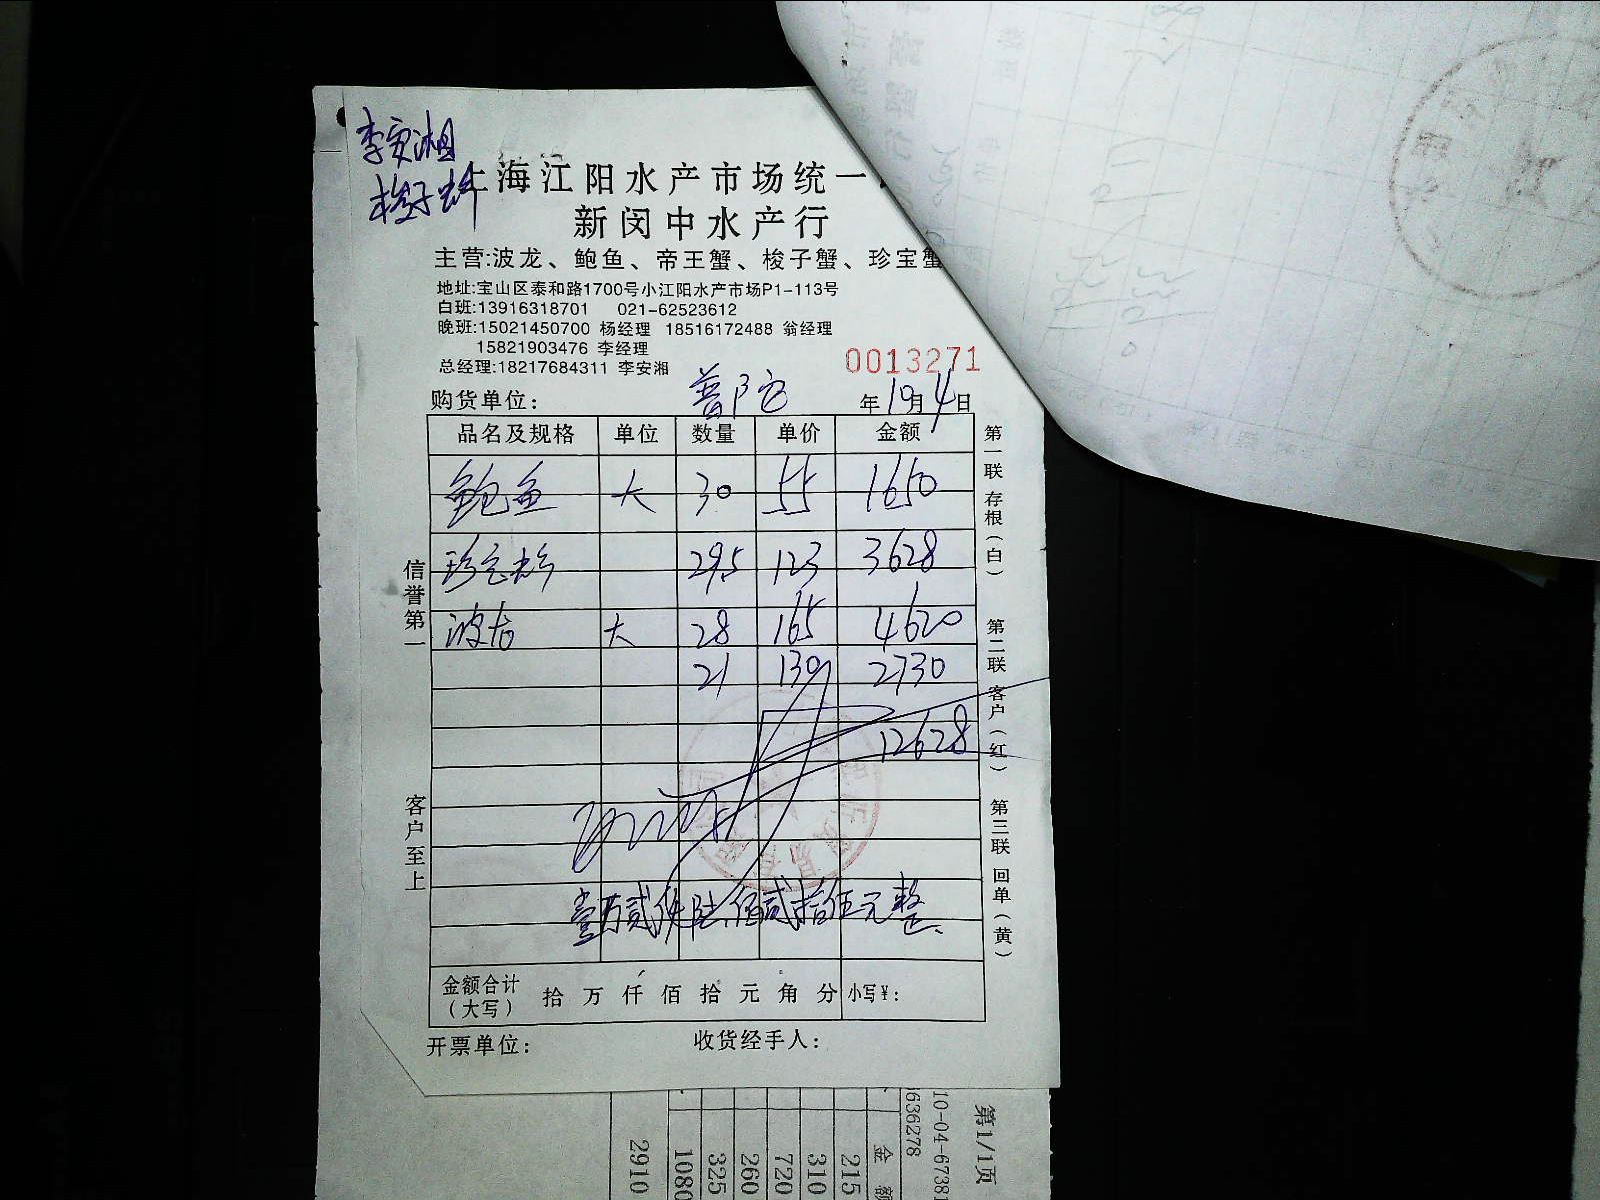 李安湘
梭子蟹
上海江阳水产市场统一
新闵中水产行
主营:波龙、鲍鱼、帝王蟹、梭子蟹、珍宝蟹
地址:宝山区泰和路1700号小江阳水产市场P1-113号
白班:13916318701 021-62523612
晚班:15021450700 杨经理 18516172488 翁经理
15821903476 李经理
总经理:18217684311 李安湘
0013271
购货单位: 普陀 年10月4日
品名及规格 单位 数量 单价 金额
鲍鱼 大 30 55 1650
珍宝蟹 29.5 123 3628
波龙 大 28 165 4620
21 130 2730
12628
壹万贰仟陆佰贰拾伍元整
金额合计(大写) 拾 万 仟 佰 拾 元 角 分 小写¥:
开票单位: 收货经手人:
信誉第一
客户至上
第一联 存根(白)
第二联 客户(红)
第三联 回单(黄)
第1/1页
10-04-67381
636278
金 额
215
310
720
260
325
1080
2910